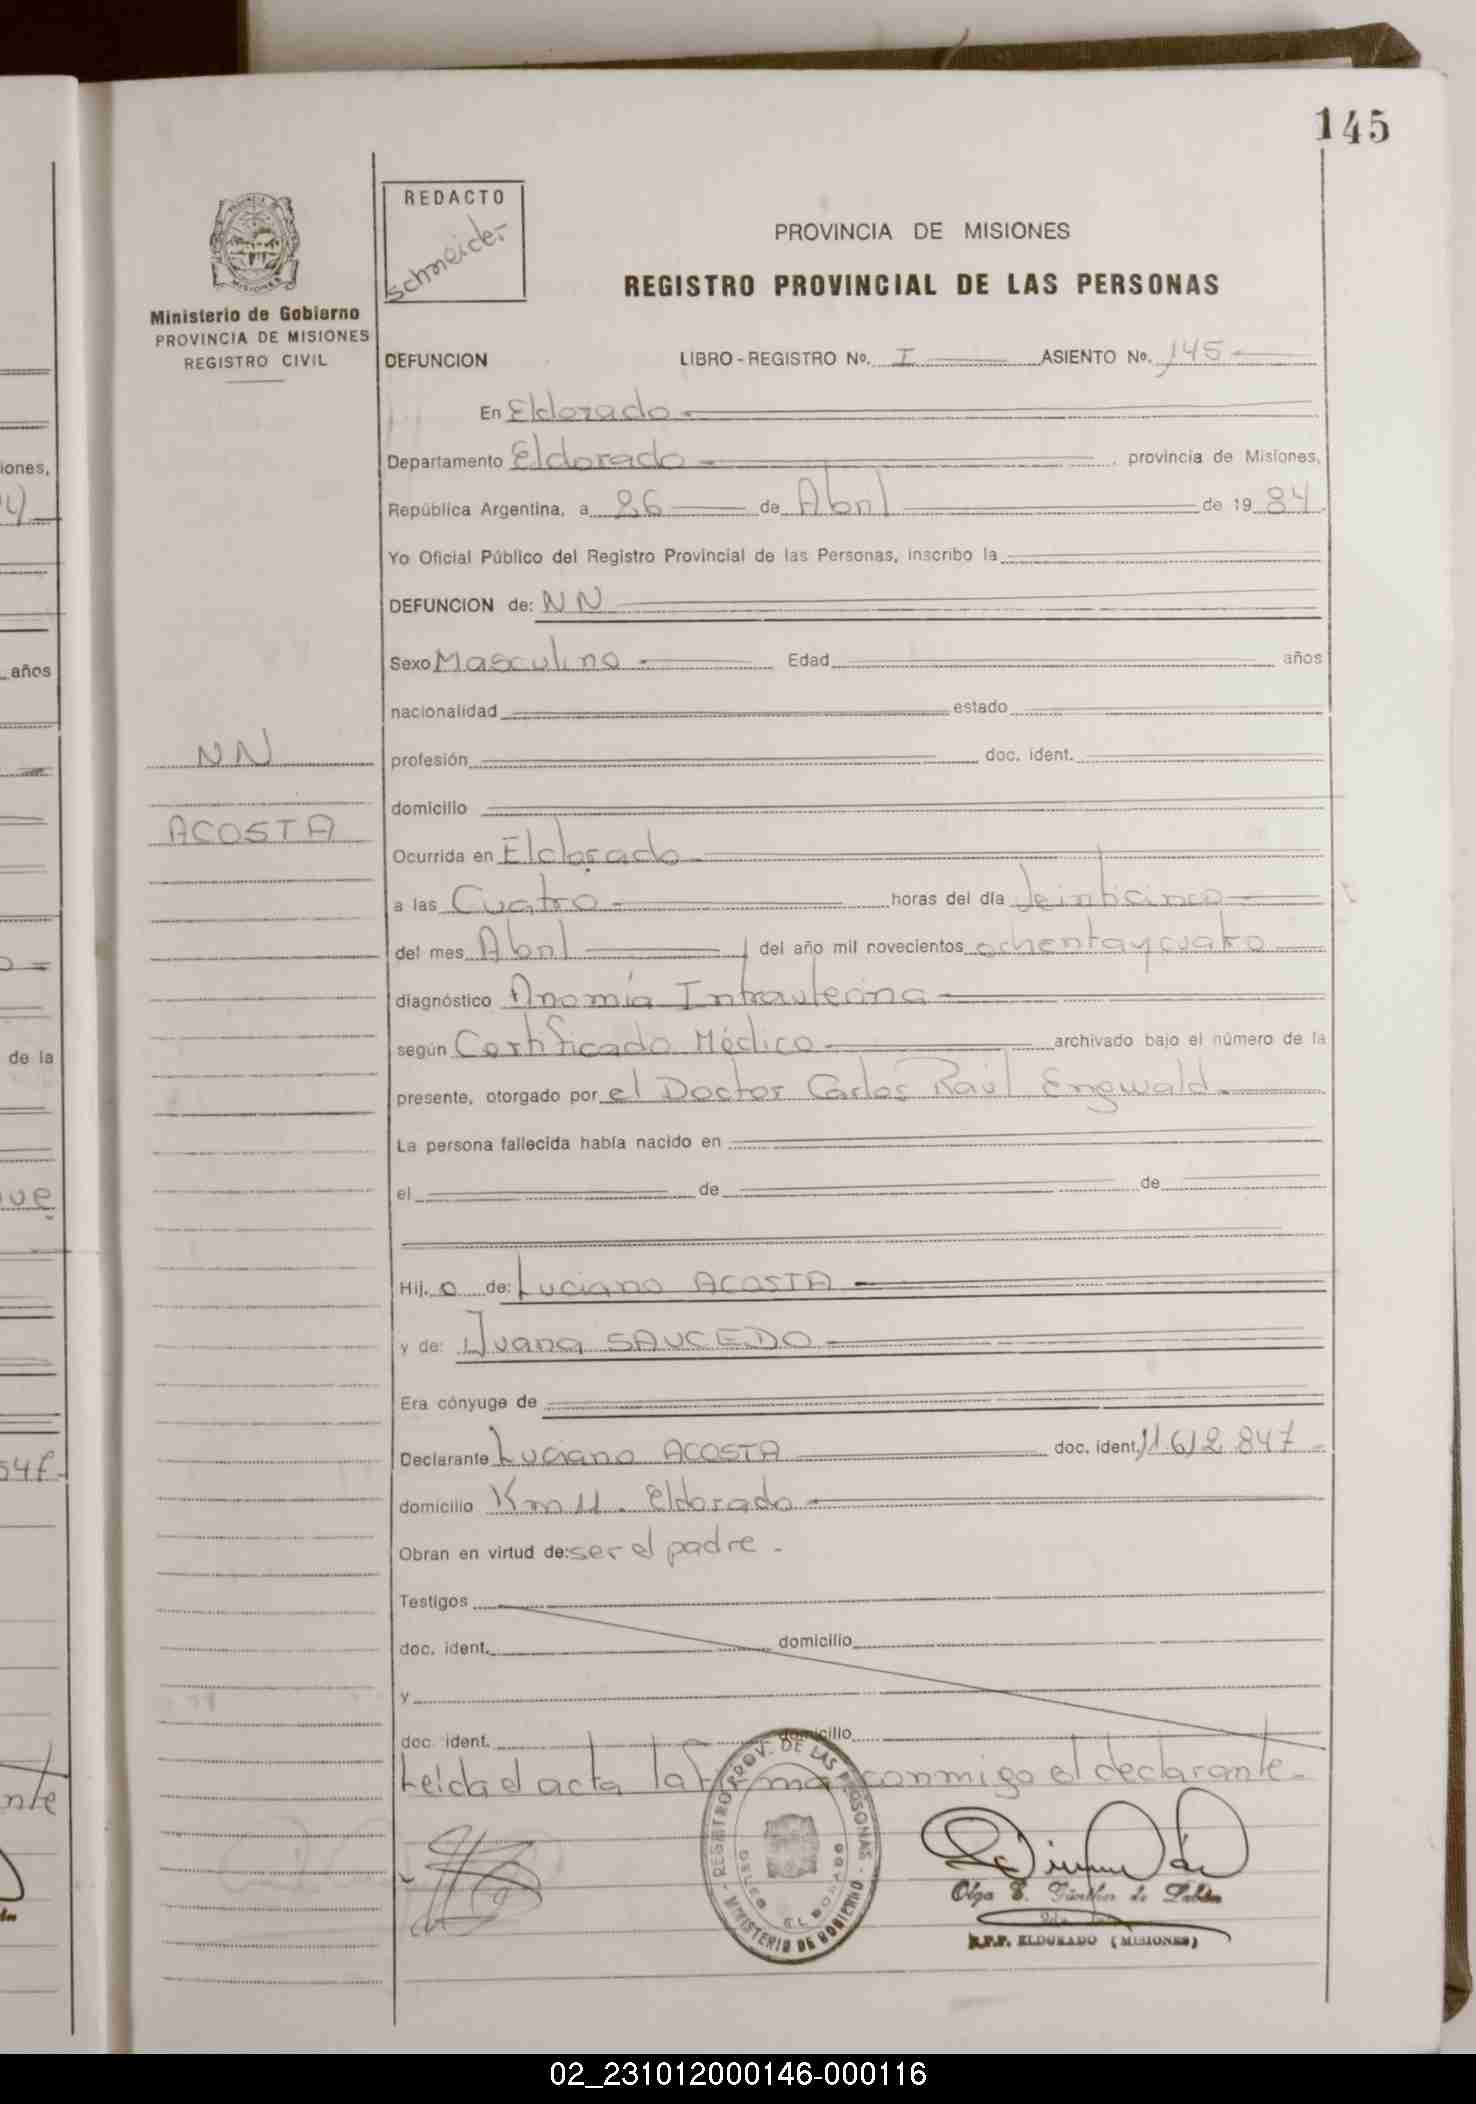 145
REDACTO
schneider
PROVINCIA DE MISIONES
REGISTRO PROVINCIAL DE LAS PERSONAS
Ministerio de Gobierno
PROVINCIA DE MISIONES
REGISTRO CIVIL
DEFUNCION LIBRO - REGISTRO No. I ASIENTO No. 145
En Eldorado
Departamento Eldorado provincia de Misiones,
República Argentina, a 26 de Abril de 1984
Yo Oficial Público del Registro Provincial de las Personas, inscribo la
DEFUNCION de: NN
Sexo Masculino Edad años
nacionalidad estado
NN
profesión doc. ident.
domicilio
ACOSTA
Ocurrida en Eldorado
a las Cuatro horas del día Veinticinco
del mes Abril del año mil novecientos ochentaycuatro
diagnóstico Anomia Intrauterina
según Certificado Médico archivado bajo el número de la
presente, otorgado por el Doctor Carlos Raúl Engwald
La persona fallecida había nacido en
el de de
Hij o de: Luciano ACOSTA
y de: Juana SAUCEDO
Era cónyuge de
Declarante Luciano ACOSTA doc. ident. 11.612.847
domicilio Km 11. Eldorado
Obran en virtud de: ser el padre.
Testigos
doc. ident. domicilio
y
doc. ident. domicilio
Leida el acta la firma conmigo el declarante.
REGISTRO PROV. DE LAS PERSONAS - MINISTERIO DE GOBIERNO -
ELDORADO
Olga
R.P.P. ELDORADO (MISIONES)
iones,
años
de la
que
547
nte
02_231012000146-000116